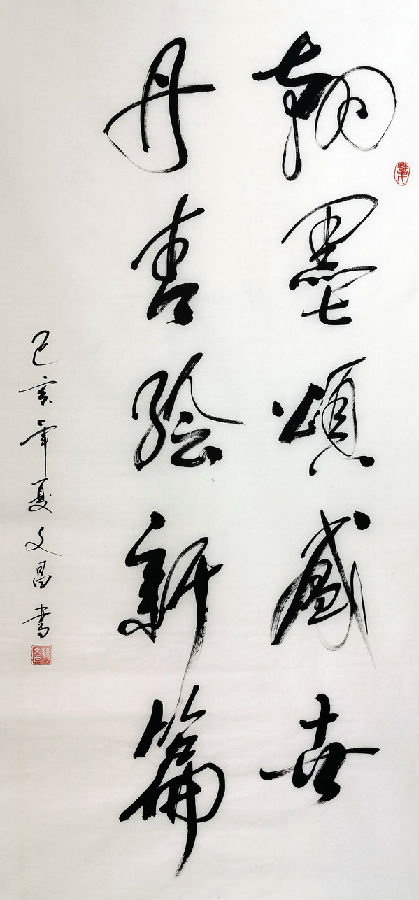 翰墨頌盛世
丹青绘新篇
己亥年夏文昌書